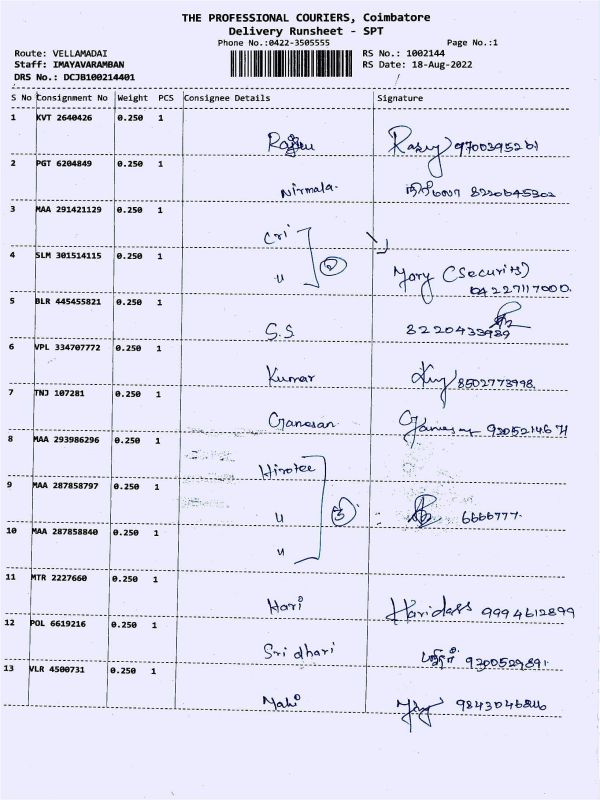 THE PROFESSIONAL COURIERS, Coimbatore
Delivery Runsheet - SPT
Phone No.:0422-3505555 Page No.:1
Route: VELLAMADAI RS No.: 1002144
Staff: IMAYAVARAMBAN RS Date: 18-Aug-2022
DRS No.: DCJB100214401
S No Consignment No Weight PCS Consignee Details Signature
1 KVT 2640426 0.250 1
2 PGT 6204849 0.250 1
Nirmala. 8220645302
3 MAA 291421129 0.250 1
Cri
4 SLM 301514115 0.250 1
u 2 (Security)
04227117000.
5 BLR 445455821 0.250 1
S.S 8220433989
6 VPL 334707772 0.250 1
Kumar 8502773998.
7 TNJ 107281 0.250 1
Ganesan
8 MAA 293986296 0.250 1
Hirotec
9 MAA 287858797 0.250 1
u 3 6666777.
10 MAA 287858840 0.250 1
u
11 MTR 2227660 0.250 1
Hari Haridass 9994612899
12 POL 6619216 0.250 1
Sridhari 9200529891.
13 VLR 4500731 0.250 1
Mahi 9843046816